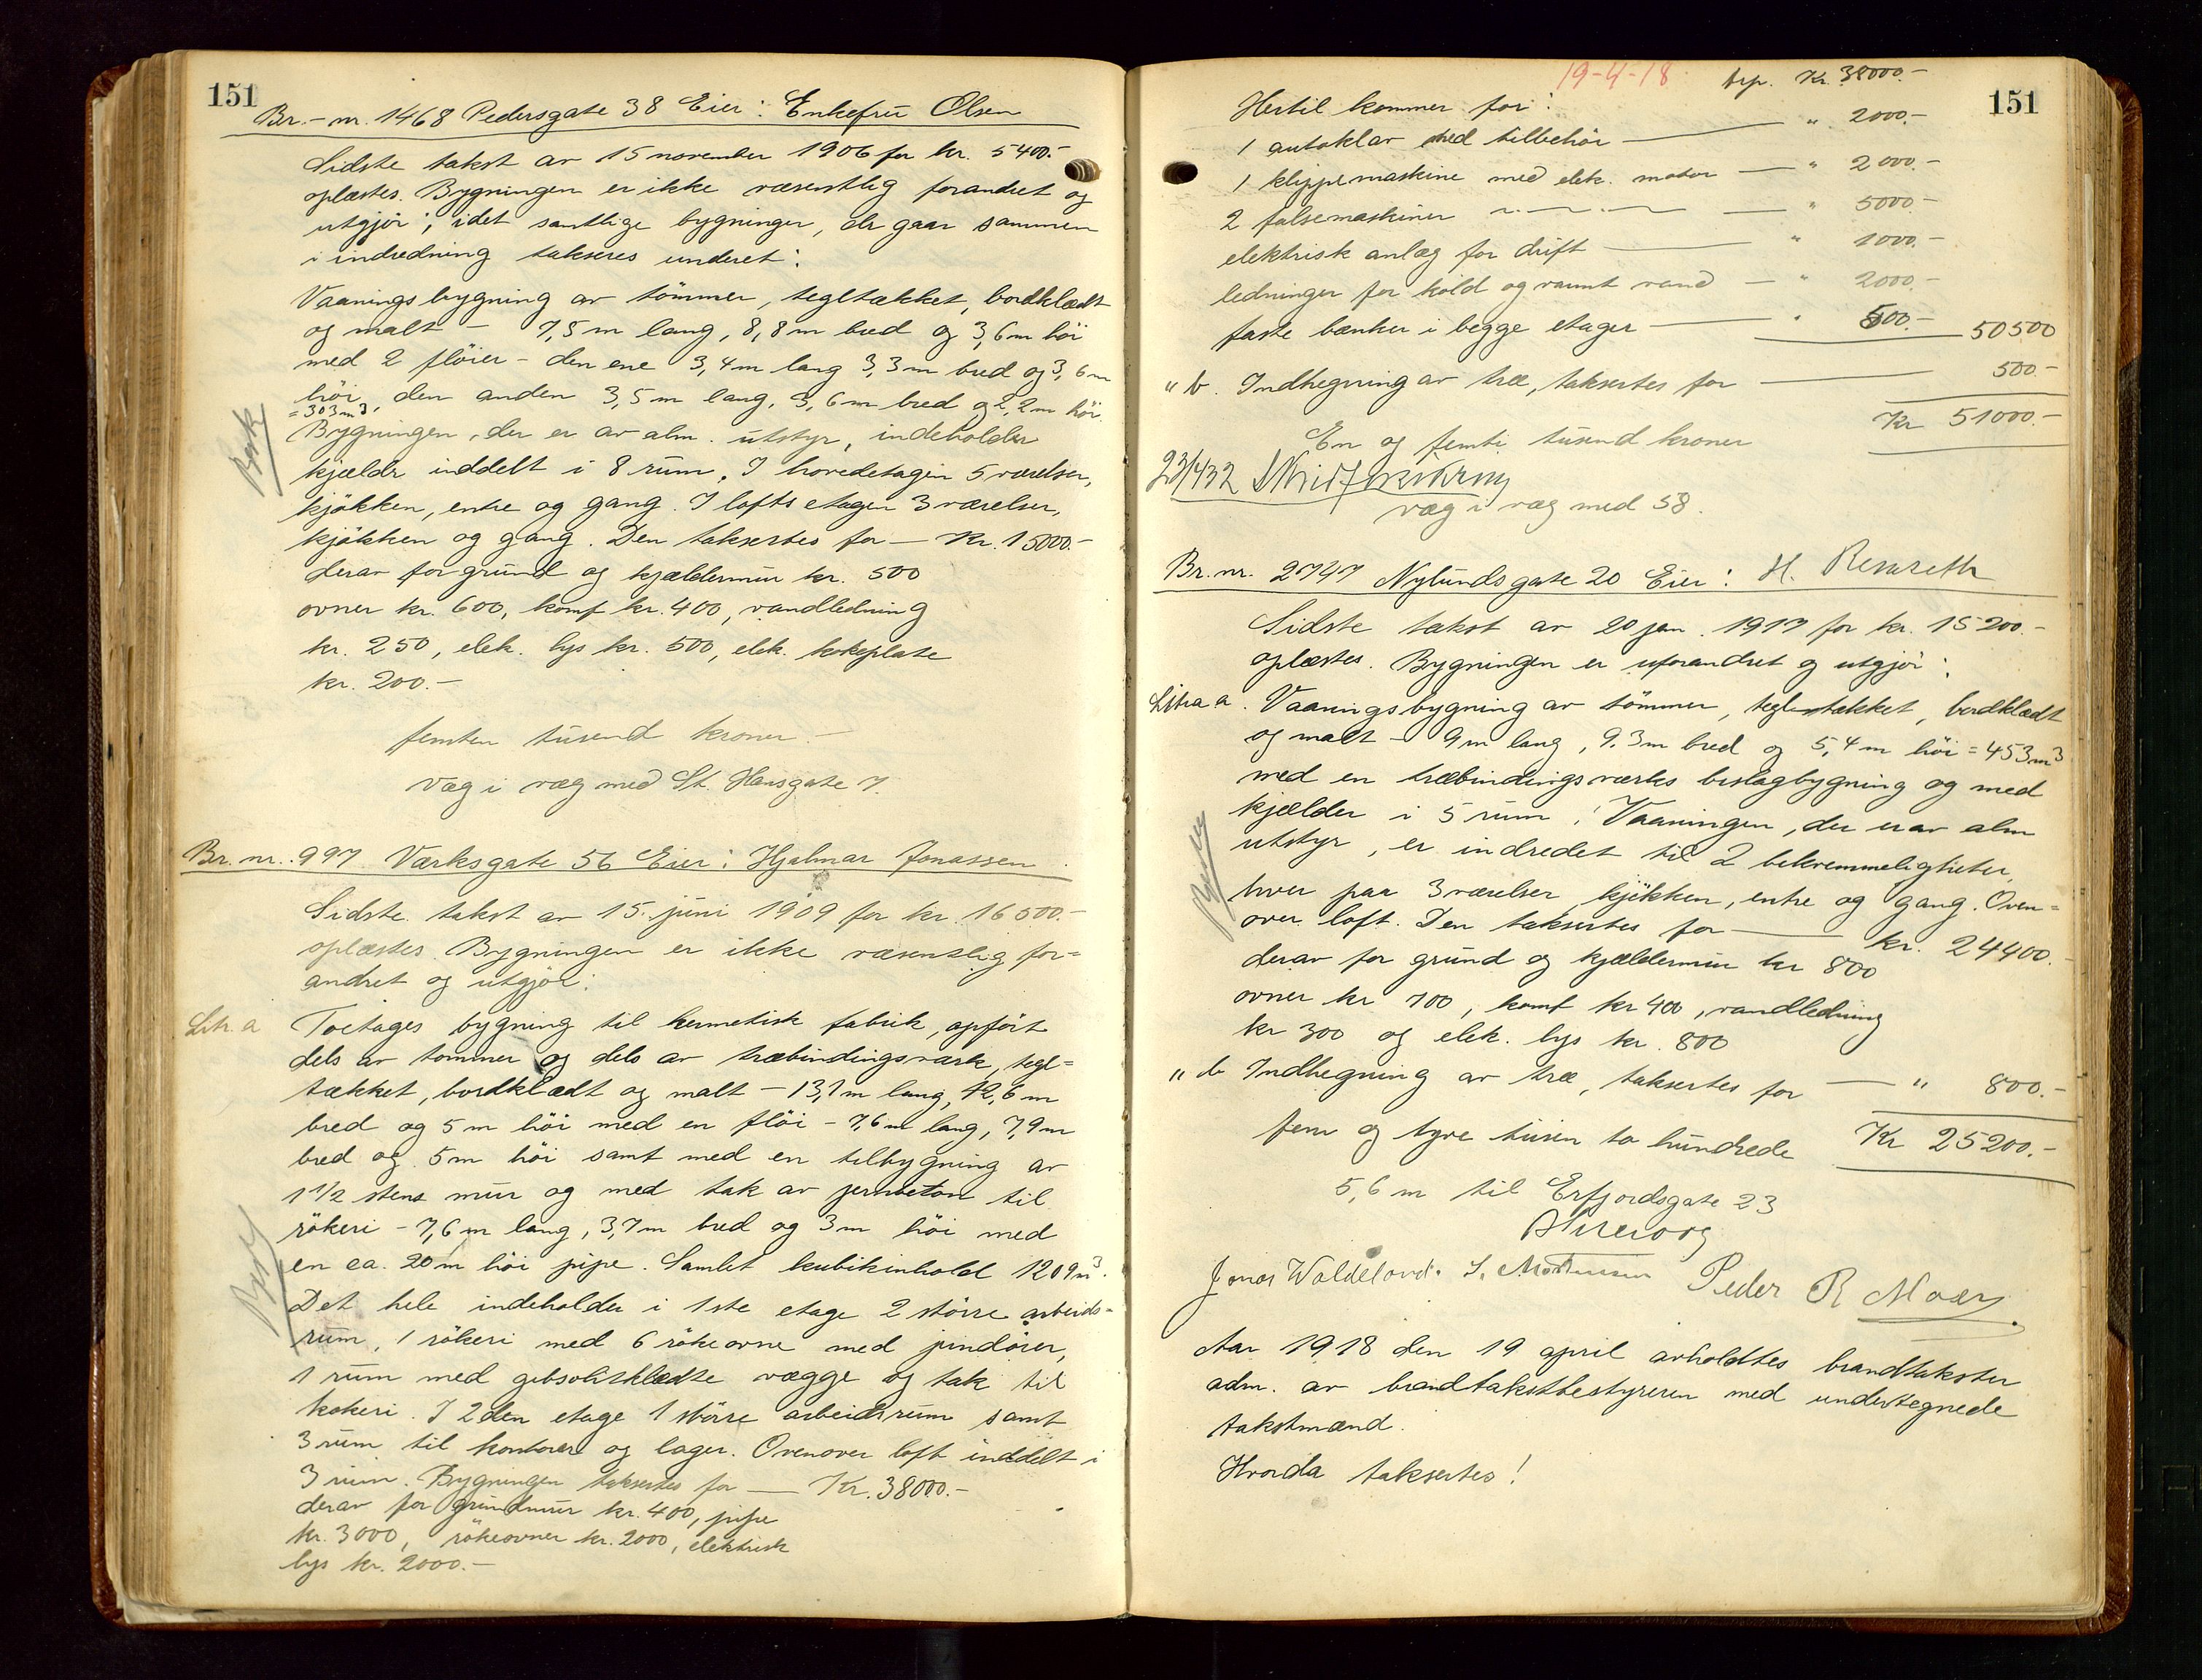 151
Br.-nr. 1468 Pedersgate 38 Eier: Enkefru Olsen
Sidste takst av 15 november 1906 for kr. 5400.-
oplæstes. Bygningen er ikke væsentlig forandret og
utgjör; idet samtlige bygninger, der gaar sammen
i indredning takseres underet:
Vaaningsbygning av tömmer, tegltækket, bordklædt
og malt - 7,5 m lang, 8,8 m bred og 3,6 m höi
med 2 flöier - den ene 3,4 m lang 3,3 m bred og 3,6 m
höi, den anden 3,5 m lang, 3,6 m bred og 2,2 m höi.
= 303 m³.
Bygningen, der er av alm. utstyr, indeholder
kjælder inddelt i 8 rum. I hovedetagen 5 værelser,
kjökken, entre og gang. I loftsetagen 3 værelser,
kjökken og gang. Den taksertes for — Kr. 15000.-
derav for grund og kjældermur kr. 500
ovner kr. 600, komf kr. 400, vandledning
kr. 250, elek. lys kr. 500, elek. kokeplate
kr. 200.-
femten tusend kroner.-
Væg i væg med St. Hansgate 7.
Br. nr. 997 Værksgate 56 Eier: Hjalmar Jonassen.
Sidste takst av 15. juni 1909 for kr. 16500.-
oplæstes. Bygningen er ikke væsentlig for=
andret og utgjör:
Litr. a Toetages bygning til hermetisk fabrik, opfört
dels av tömmer og dels av træbindingsværk, tegl=
tækket, bordklædt og malt - 13,1 m lang, 12,6 m
bred og 5 m höi med en flöi - 7,6 m lang, 7,9 m
bred og 5 m höi samt med en tilbygning av
1 1/2 stens mur og med tak av jernbeton til
rökeri - 7,6 m lang, 3,7 m bred og 3 m höi med
en ca. 20 m höi pipe. Samlet kubikinhold 1209 m³.
Det hele indeholder i 1ste etage 2 större arbeids=
rum, 1 rökeri med 6 rökeovne med jerndörer,
1 rum med gibsolitklædte vægge og tak til
kokeri. I 2den etage 1 större arbeidsrum samt
3 rum til kontorer og lager. Ovenover loft inddelt i
3 rum. Bygningen taksertes for — Kr. 38000.-
derav for grundmur kr. 400, pipe
kr. 3000, rökeovner kr. 2000, elektrisk
lys kr. 2000.-
19-4-18 trp. Kr. 38000.-
151
Hertil kommer for:
1 autoklav med tilbehör — " 2000.-
1 klippemaskine med elek. motor — " 2000.-
2 falsemaskiner — " 5000.-
elektrisk anlæg for drift — " 1000.-
ledninger for kold og varmt vand — " 2000.-
faste bænker i begge etager — " 500.- 50500
" b. Indhegning av træ, taksertes for — 500.-
Kr 51000.-
En og femti tusend kroner
23/4 32
væg i væg med 58.
Br. nr. 2747 Nylundsgate 20 Eier: H.
Sidste takst av 20 jan. 1917 for kr. 15200.-
oplæstes. Bygningen er uforandret og utgjör:
Litra a. Vaaningsbygning av tömmer, tegltækket, bordklædt
og malt - 9 m lang, 9.3 m bred og 5,4 m höi = 453 m³
med en træbindingsværks beslagbygning og med
kjælder i 5 rum. Vaaningen, der er av alm
utstyr, er indredet til 2 bekvemmeligheter,
hver paa 3 værelser, kjökken, entre og gang. Oven=
over loft. Den taksertes for — kr. 24400.
derav for grund og kjældermur kr 800
ovner kr 700, komf kr 400, vandledning
kr 300 og elek. lys kr. 800
" b Indhegning av træ, taksertes for — " 800.-
fem og tyve tusen to hundrede Kr 25200.-
5,6 m til Erfjordsgate 23
Jonas Waldeland. S. Mortensen Peder R Moen.
Aar 1918 den 19 april avholdtes brandtakster
adm. av brandtakstbestyreren med undertegnede
takstmænd.
Hvorda taksertes!